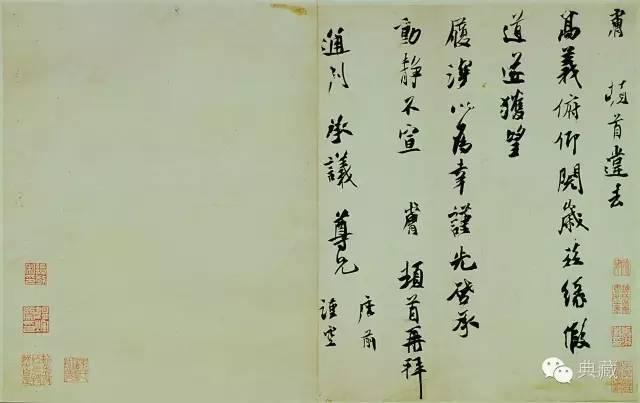 膚 頓首違去
高義俯仰閱歲茲緣假
道遂獲望
履深以為幸謹先啓承
動靜不宣 膚 頓首再拜
通判 承議 尊兄
座前
謹空
典藏